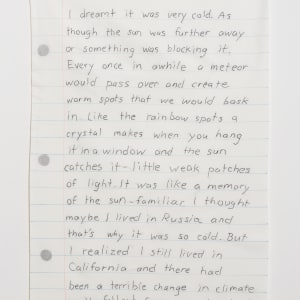 I dreamt it was very cold. As
though the sun was further away
or something was blocking it.
Every once in awhile a meteor
would pass over and create
warm spots that we would bask
in. Like the rainbow spots a
crystal makes when you hang
it in a window and the sun
catches it - little weak patches
of light. It was like a memory
of the sun - familiar. I thought
maybe I lived in Russia and
that's why it was so cold. But
I realized I still lived in
California and there had
been a terrible change in climate